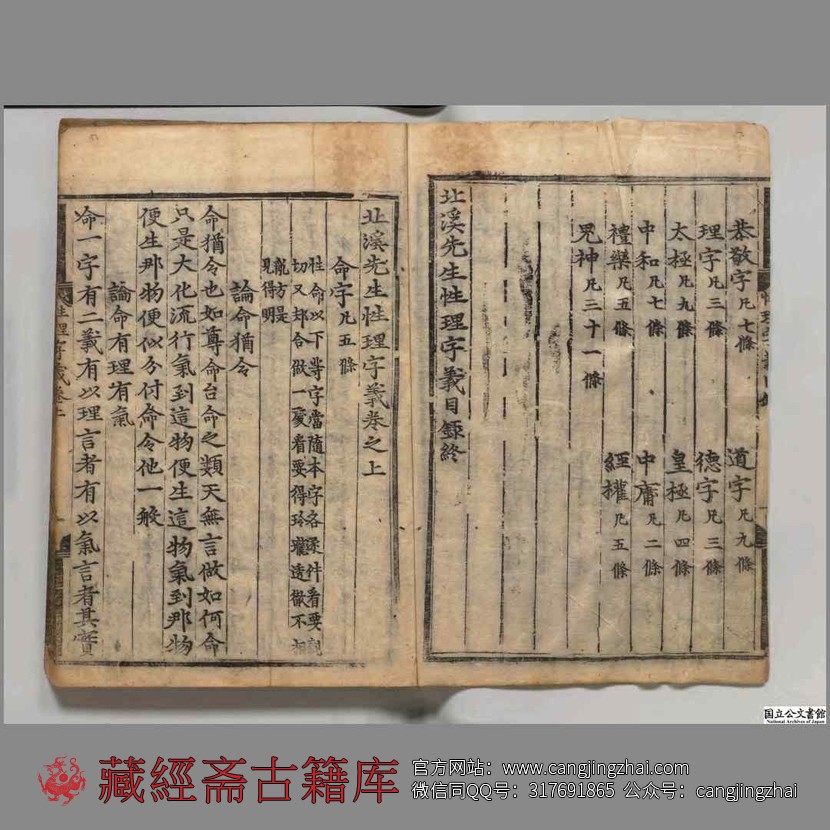 恭敬字凡七條 道字凡九條
理字凡三條 德字凡三條
太極凡九條 皇極凡四條
中和凡七條 中庸凡二條
禮樂凡五條 經權凡五條
鬼神凡三十一條
北溪先生性理字義目錄終
北溪先生性理字義卷之上
命字凡五條
性命以下等字當隨本字各逐件看要親
切又却合做一處看要得玲瓏透徹不相
亂方是
見得明
論命猶令
命猶令也如尊命台命之類天無言做如何命
只是大化流行氣到這物便生這物氣到那物
便生那物便似分付命令他一般
論命有理有氣
命一字有二義有以理言者有以氣言者其實
性理字義卷上
国立公文書館
National Archives of Japan
藏經斎古籍库
官方网站：www.cangjingzhai.com
微信同QQ号：317691865 公众号：cangjingzhai